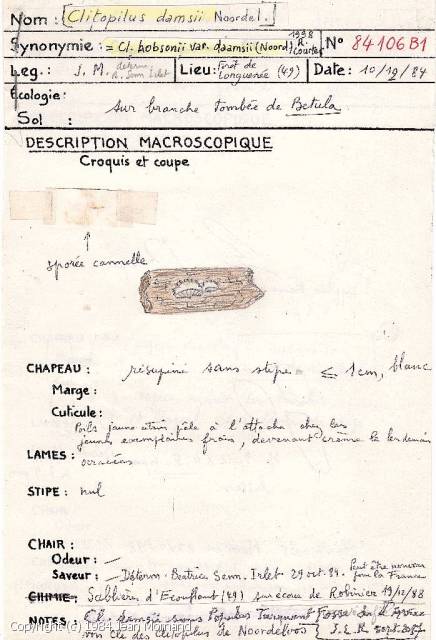 Nom : Clitopilus damsii Noordel.
Synonymie : = Cl. hobsonii var. daamsii (Noord.) R. Courtec. 1998 N° 84106B1
Leg. : J. M. determ. B. Senn Irlet Lieu : Forêt de Longuenée (49) Date : 10/12/84
Ecologie :
Sur branche tombée de Betula
Sol :
DESCRIPTION MACROSCOPIQUE
Croquis et coupe
sporée cannelle
CHAPEAU : résupiné sans stipe ≤ 1cm, blanc
Marge :
Cuticule :
Poils jaune citrin pâle à l'attache chez les
jeunes exemplaires frais, devenant crème le lendemain
LAMES : ocracées
STIPE : nul
CHAIR :
Odeur : —
Saveur : — Déterm. Beatrice Senn. Irlet 29 oct. 89. Peut être nouveau pour la France
CHIMIE : Sablière d'Ecouflant (49) sur écorce de Robinier 19/12/88
NOTES : Cl. damsii sous Populus
voir clé des clitopilus de Noordeloos
Copyright (c) 1984 Jean Mornand